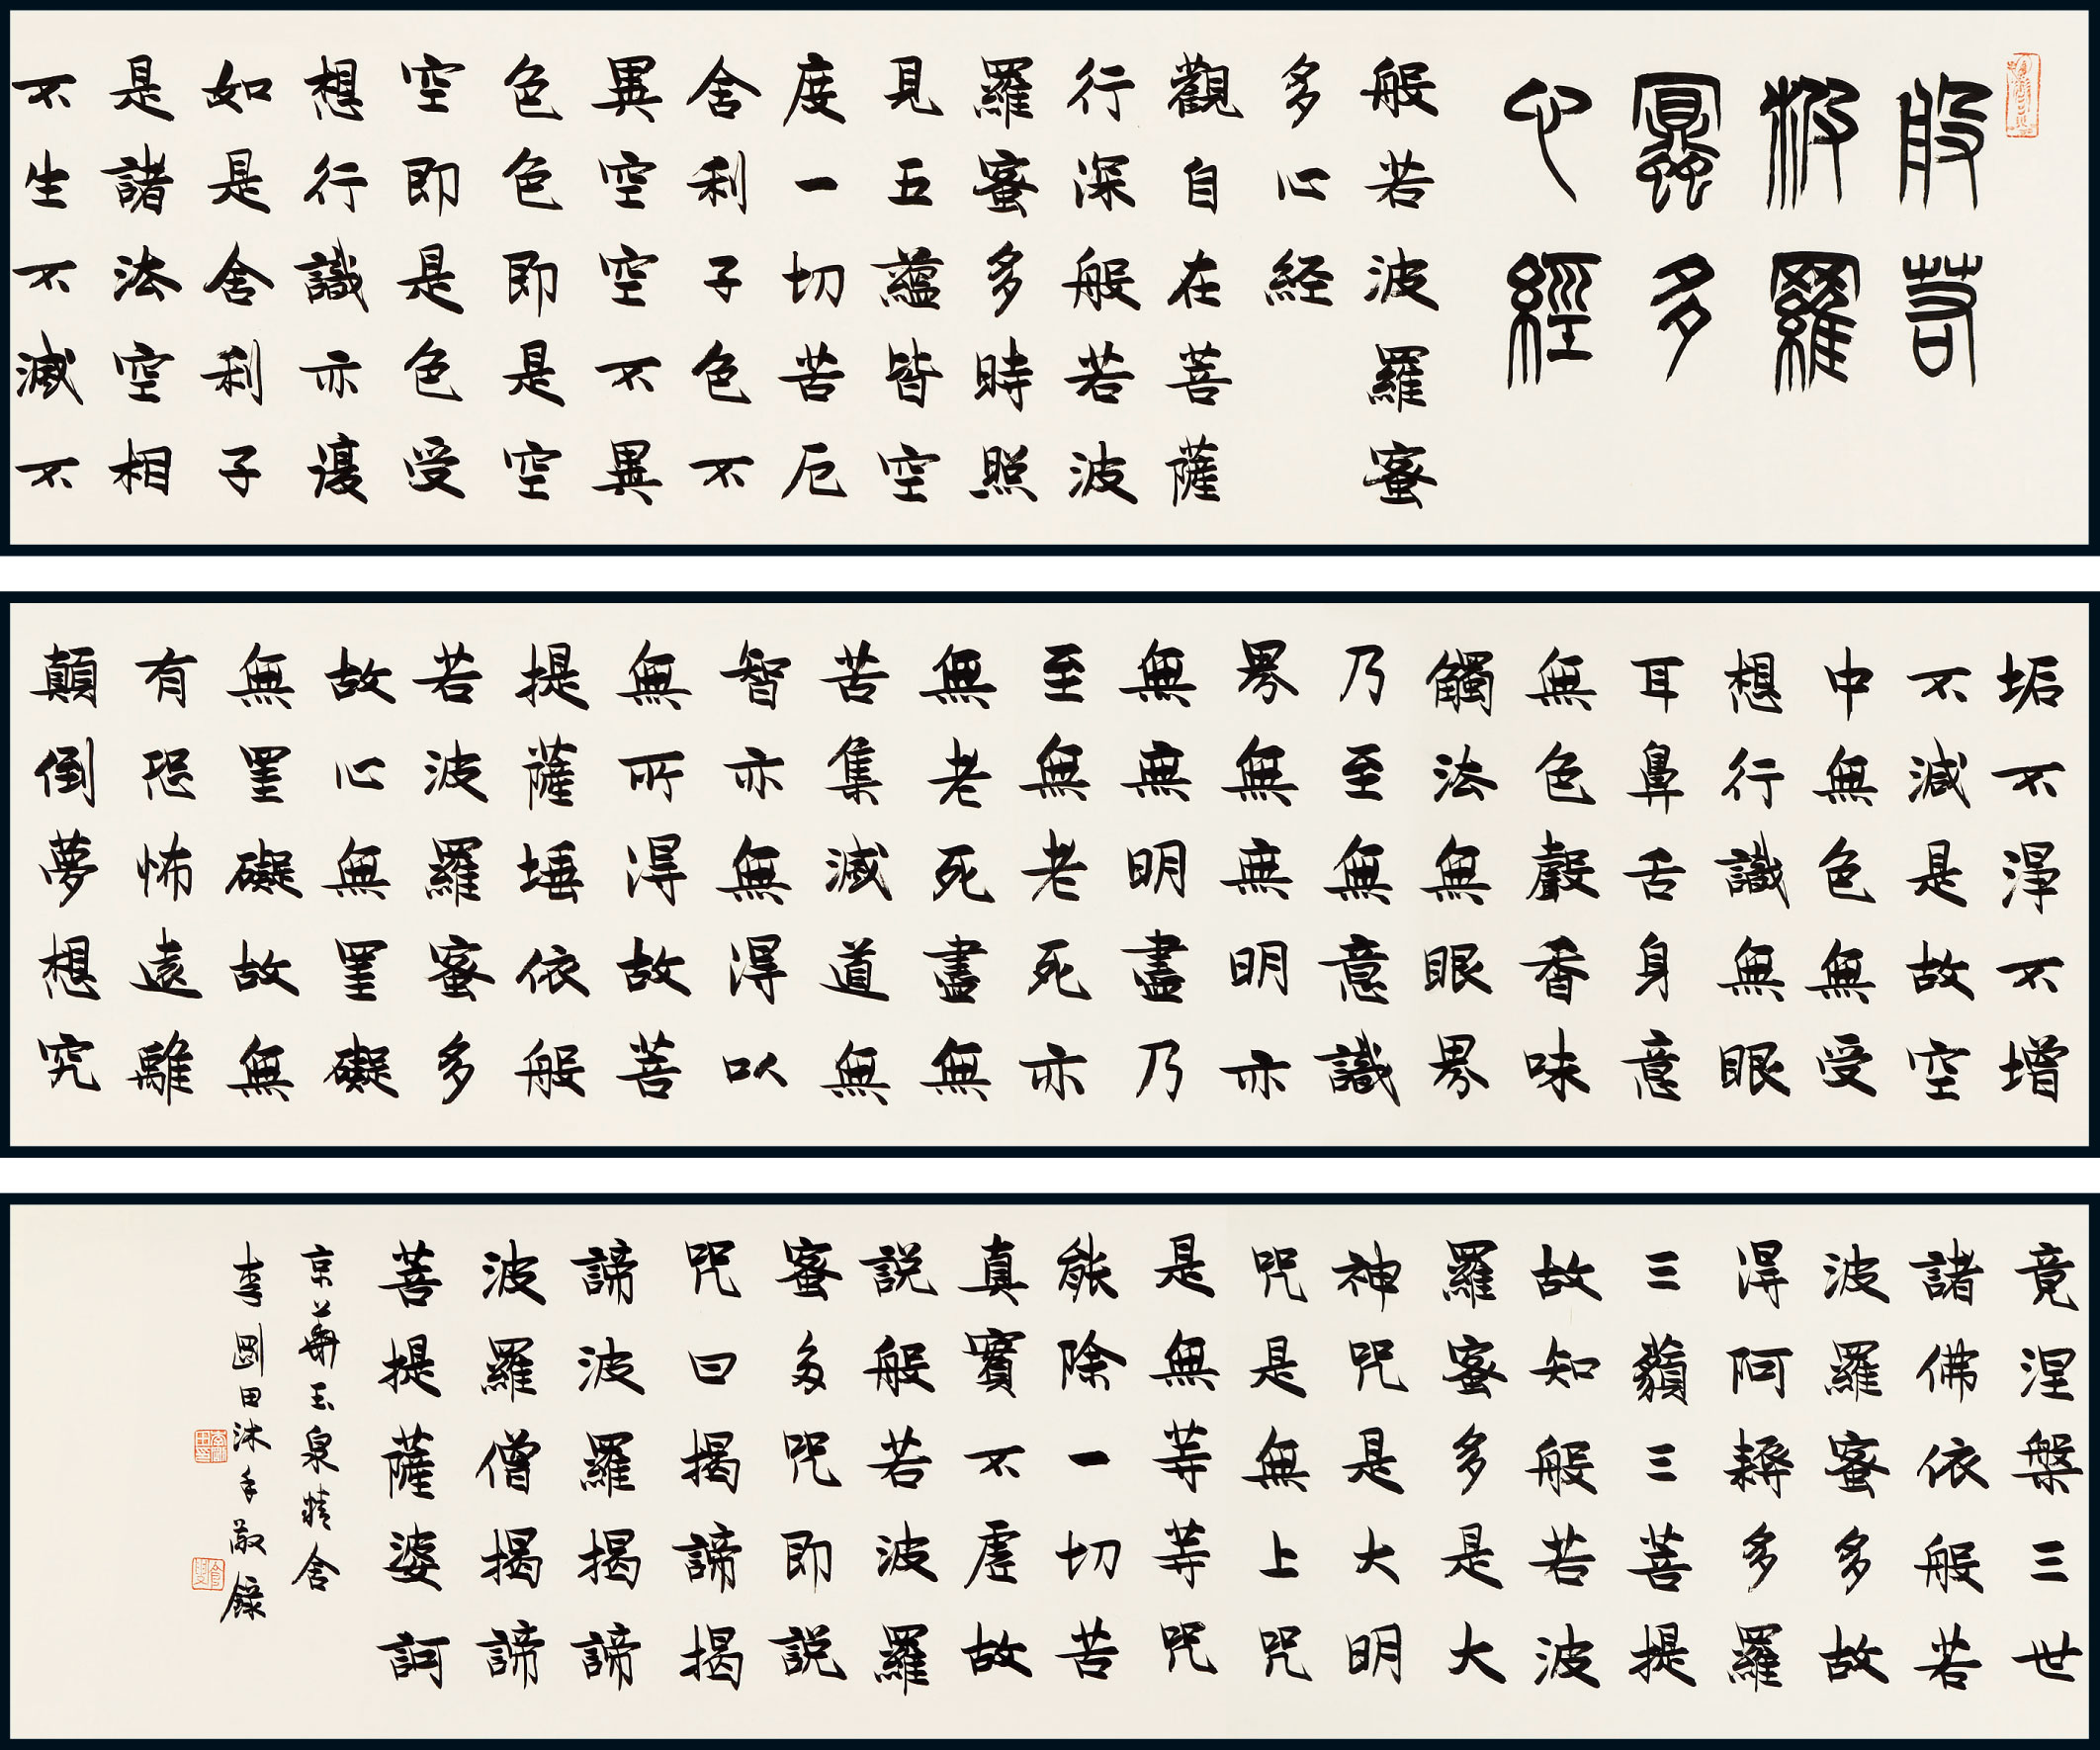 般若
波羅
蜜多
心經
般若波羅蜜
多心経
觀自在菩薩
行深般若波
羅蜜多時照
見五蘊皆空
度一切苦厄
舍利子色不
異空空不異
色色即是空
空即是色受
想行識亦復
如是舍利子
是諸法空相
不生不滅不
垢不淨不增
不減是故空
中無色無受
想行識無眼
耳鼻舌身意
無色聲香味
觸法無眼界
乃至無意識
界無無明亦
無無明盡乃
至無老死亦
無老死盡無
苦集滅道無
智亦無得以
無所得故菩
提薩埵依般
若波羅蜜多
故心無罣礙
無罣礙故無
有恐怖遠離
顛倒夢想究
竟涅槃三世
諸佛依般若
波羅蜜多故
得阿耨多羅
三藐三菩提
故知般若波
羅蜜多是大
神咒是大明
咒是無上咒
是無等等咒
能除一切苦
真實不虛故
説般若波羅
蜜多咒即説
咒曰揭諦揭
諦波羅揭諦
波羅僧揭諦
菩提薩婆訶
京華玉泉精舍
李國田沐手敬錄